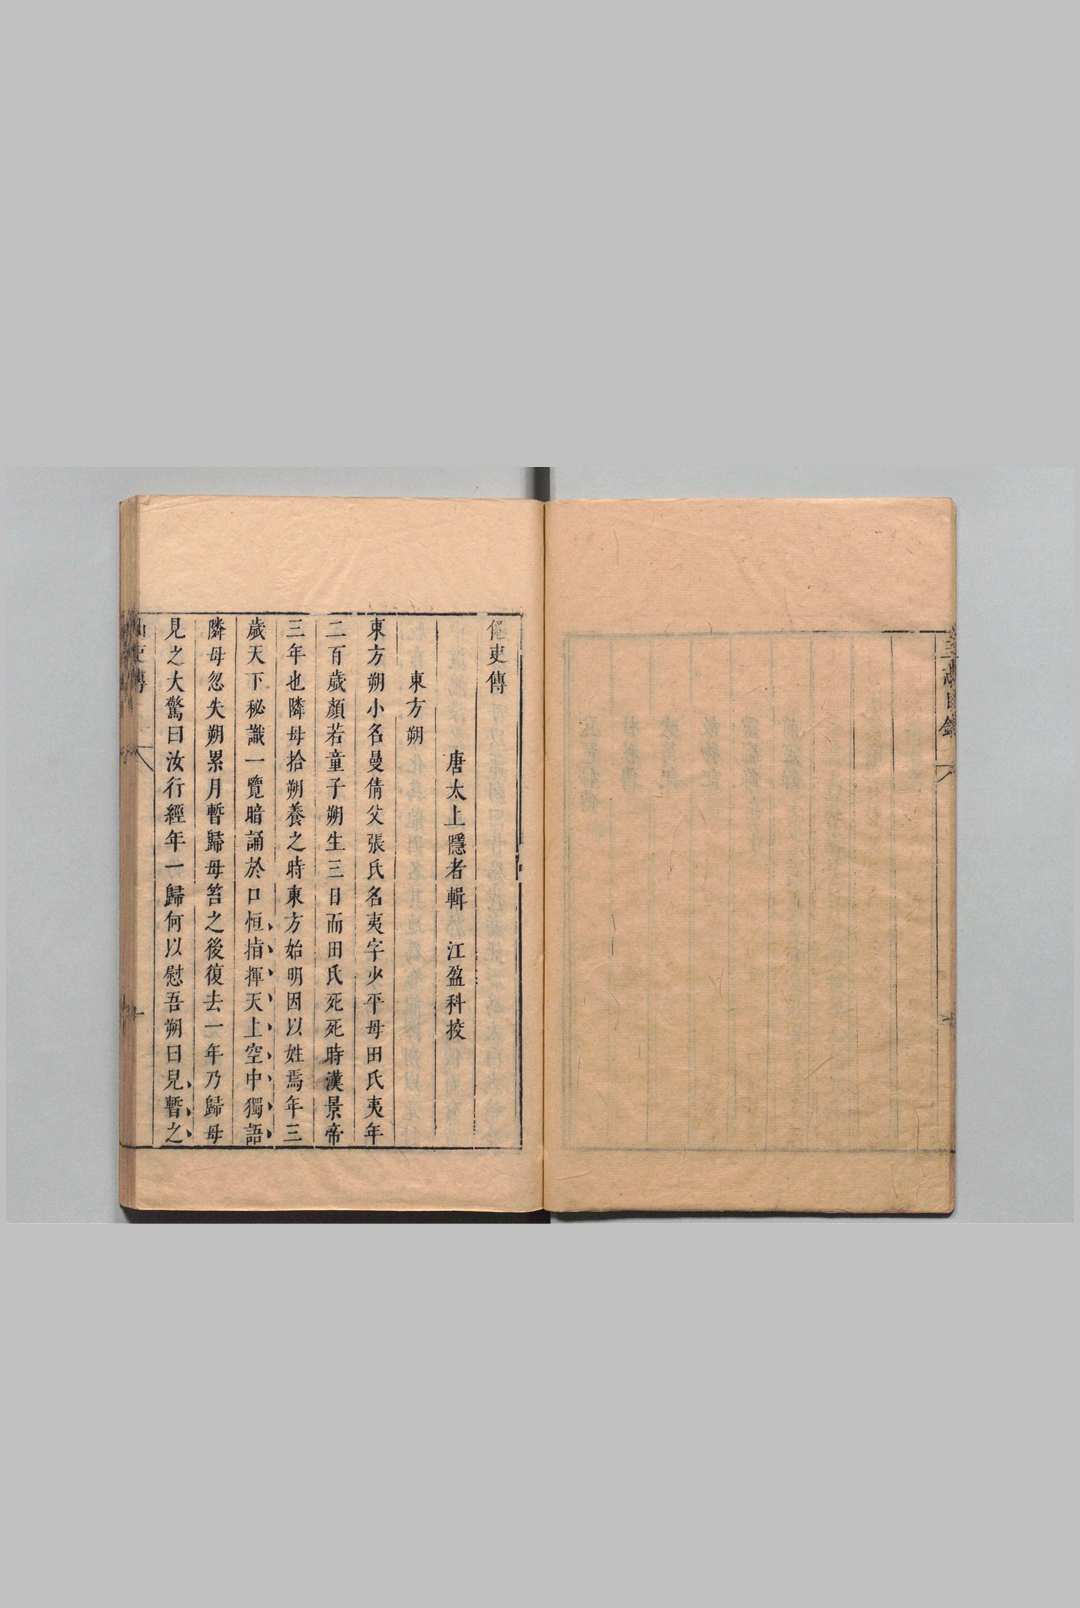 目錄
僊吏傳
唐太上隱者輯　江盈科挍
東方朔
東方朔小名曼倩父張氏名夷字少平母田氏夷年
二百歲顏若童子朔生三日而田氏死死時漢景帝
三年也隣母拾朔養之時東方始明因以姓焉年三
歲天下秘讖一覽暗誦於口恒指揮天上空中獨語
隣母忽失朔累月暫歸母笞之後復去一年乃歸母
見之大驚曰汝行經年一歸何以慰吾朔曰兒暫之